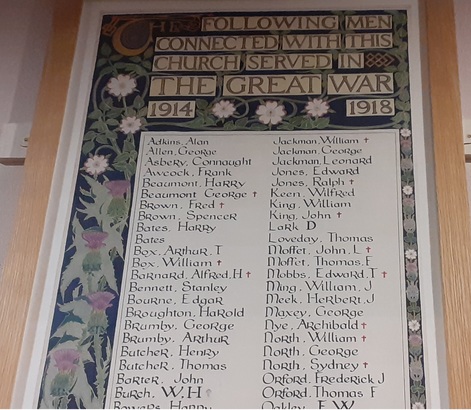 THE FOLLOWING MEN
CONNECTED WITH THIS
CHURCH SERVED IN
THE GREAT WAR
1914 1918
Adkins, Alan
Allen, George
Asbery, Connaught
Awcock, Frank
Beaumont, Harry
Beaumont George †
Brown, Fred †
Brown, Spencer
Bates, Harry
Bates
Box, Arthur, T
Box, William †
Barnard, Alfred, H †
Bennett, Stanley
Bourne, Edgar
Broughton, Harold
Brumby, George
Brumby, Arthur
Butcher, Henry
Butcher, Thomas
Barter, John
Burch, W. H †
Bowers, Harry
Jackman, William †
Jackman, George
Jackman, Leonard
Jones, Edward
Jones, Ralph †
Keen, Wilfred
King, William
King, John †
Lark D
Loveday, Thomas
Moffet, John, L †
Moffet, Thomas, F
Mobbs, Edward, T †
Ming, William, J
Meek, Herbert, J
Maxey, George
Nye, Archibald †
North, William †
North, George
North, Sydney †
Orford, Frederick J
Orford, Thomas F
Oakley, F. W